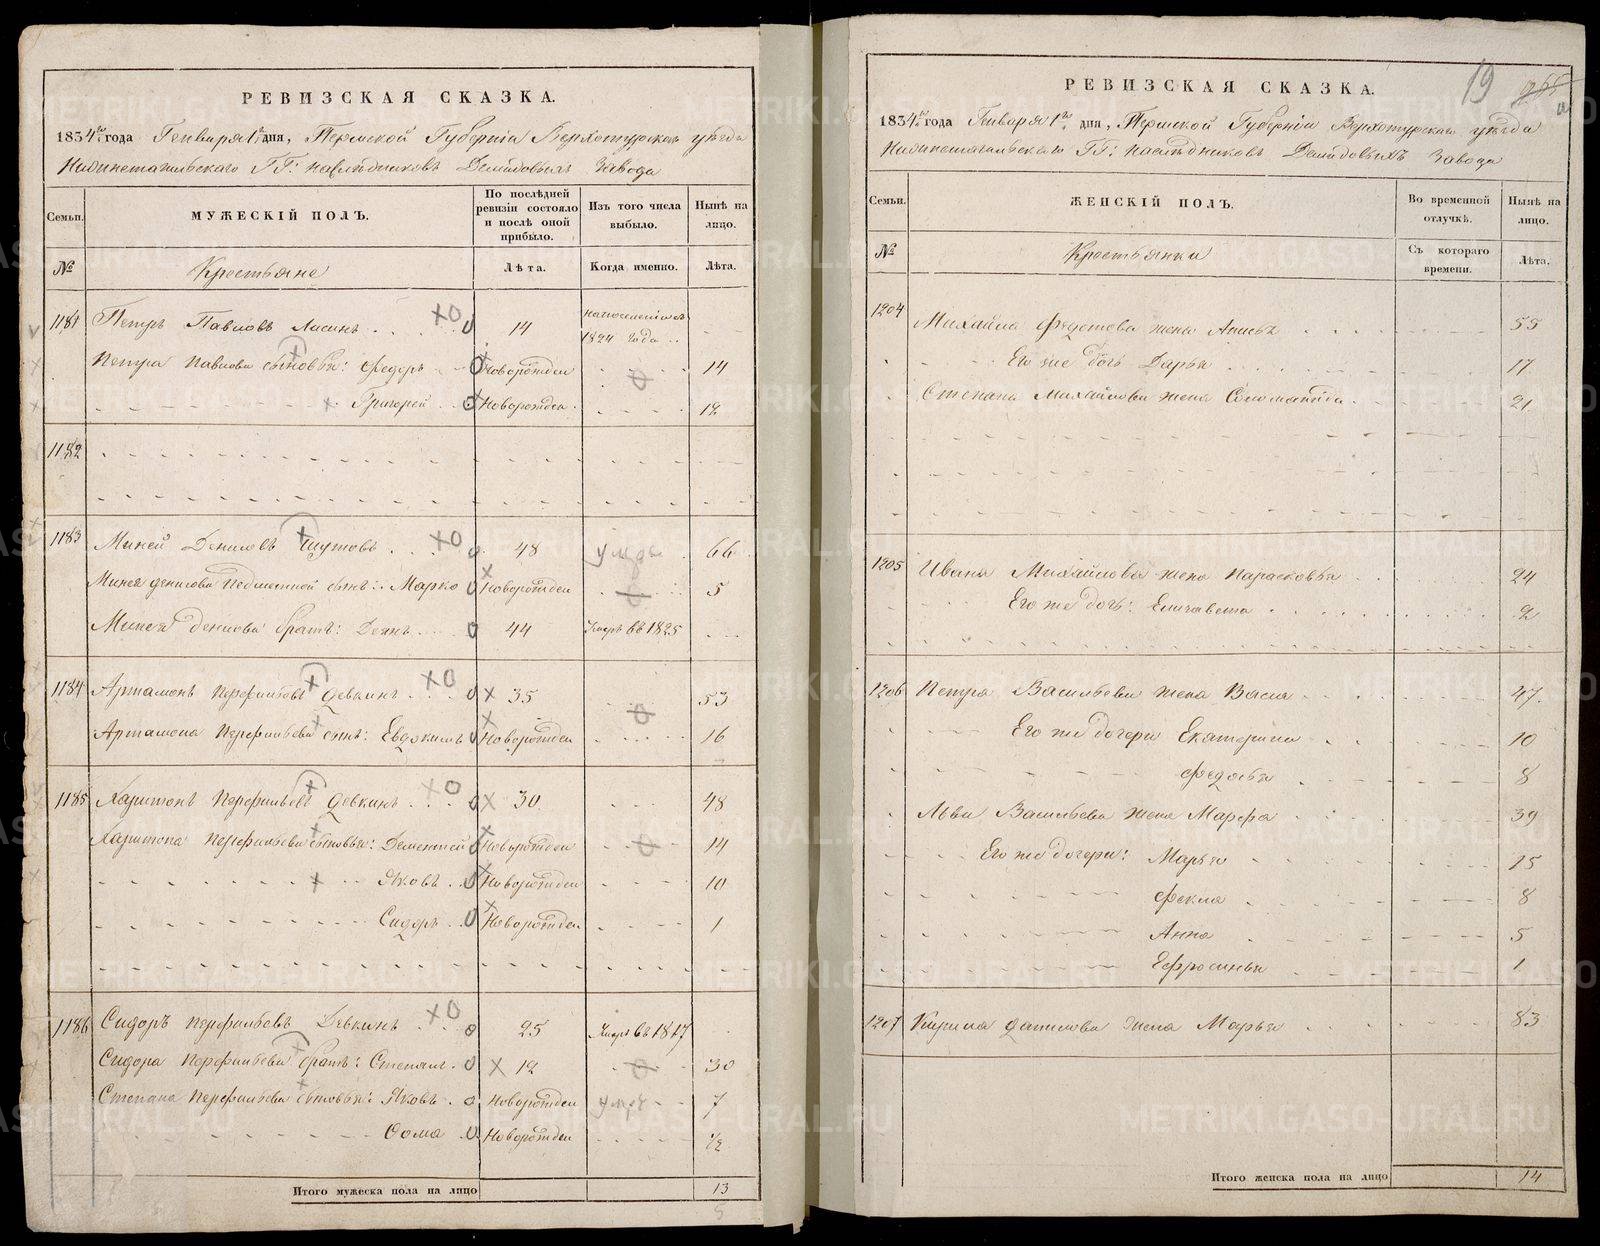 РЕВИЗСКАЯ СКАЗКА.
1834го года Генваря 1го дня, Пермской Губернии Верхотурскаго уѣзда
Нижнетагильскаго ГГ: наслѣдниковъ Демидовыхъ завода
Семьи.
МУЖЕСКІЙ ПОЛЪ.
По послѣдней ревизіи состояло и послѣ оной прибыло.
Изъ того числа выбыло.
Нынѣ на лицо.
№
Крестьяне
Лѣта.
Когда именно.
Лѣта.
1181 Петръ Павловъ 14 1824 года
Петра Павлова сыновья: Федоръ Новорожден 14
Григорей Новорожден 12
1182
1183 Миней Денисовъ Шутовъ 48 умръ 66
Минея Денисова сынъ: Марко Новорожден 5
Минея Денисова братъ: 44 Умръ въ 1825
1184 Артамонъ Перфильевъ Девкинъ 35 53
Артамона Перфильева сынъ: Евдокимъ Новорожден 16
1185 Харитонъ Перфильевъ Девкинъ 30 48
Харитона Перфильева сыновья: Дементей Новорожден 14
Яковъ Новорожден 10
Сидоръ Новорожден 1
1186 Сидоръ Перфильевъ Девкинъ 25 Умръ въ 1817
Сидора Перфильева братъ: Степанъ 12 30
Степана Перфильева сыновья: Яковъ Новорожден умръ 7
Фома Новорожден ½
Итого мужеска пола на лицо 13
5
19
РЕВИЗСКАЯ СКАЗКА.
1834го года Генваря 1го дня, Пермской Губерніи Верхотурскаго уѣзда
Нижнетагильскаго ГГ: наслѣдниковъ Демидовыхъ завода
Семьи.
ЖЕНСКІЙ ПОЛЪ.
Во временной отлучкѣ.
Нынѣ на лицо.
№
Крестьянки
Съ котораго времени.
Лѣта.
1204 Михайла Федотова жена Анисья 55
Его же дочь Дарья 17
Степана Михайлова жена Соломанида 21
1205 Ивана Михайлова жена Парасковья 24
Его же дочь: Елизавета 2
1206 Петра Васильева жена Васса 47
Его же дочери Екатерина 10
Федосья 8
Льва Васильева жена Марфа 39
Его же дочери: Марья 15
Фекла 8
Анна 5
Ефросинья 1
1207 Кирила Данилова жена Марья 83
Итого женска пола на лицо 14
METRIKI.GASO-URAL.RU